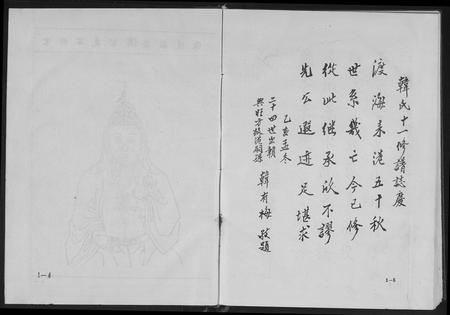 韓氏十一修譜誌慶
渡海來港五十秋
世系幾亡今已修
從此継承欣不謬
先公遐迹足堪求
乙亥孟冬
二十四世出嗣
韓有梅 敬題
1-5
1-4